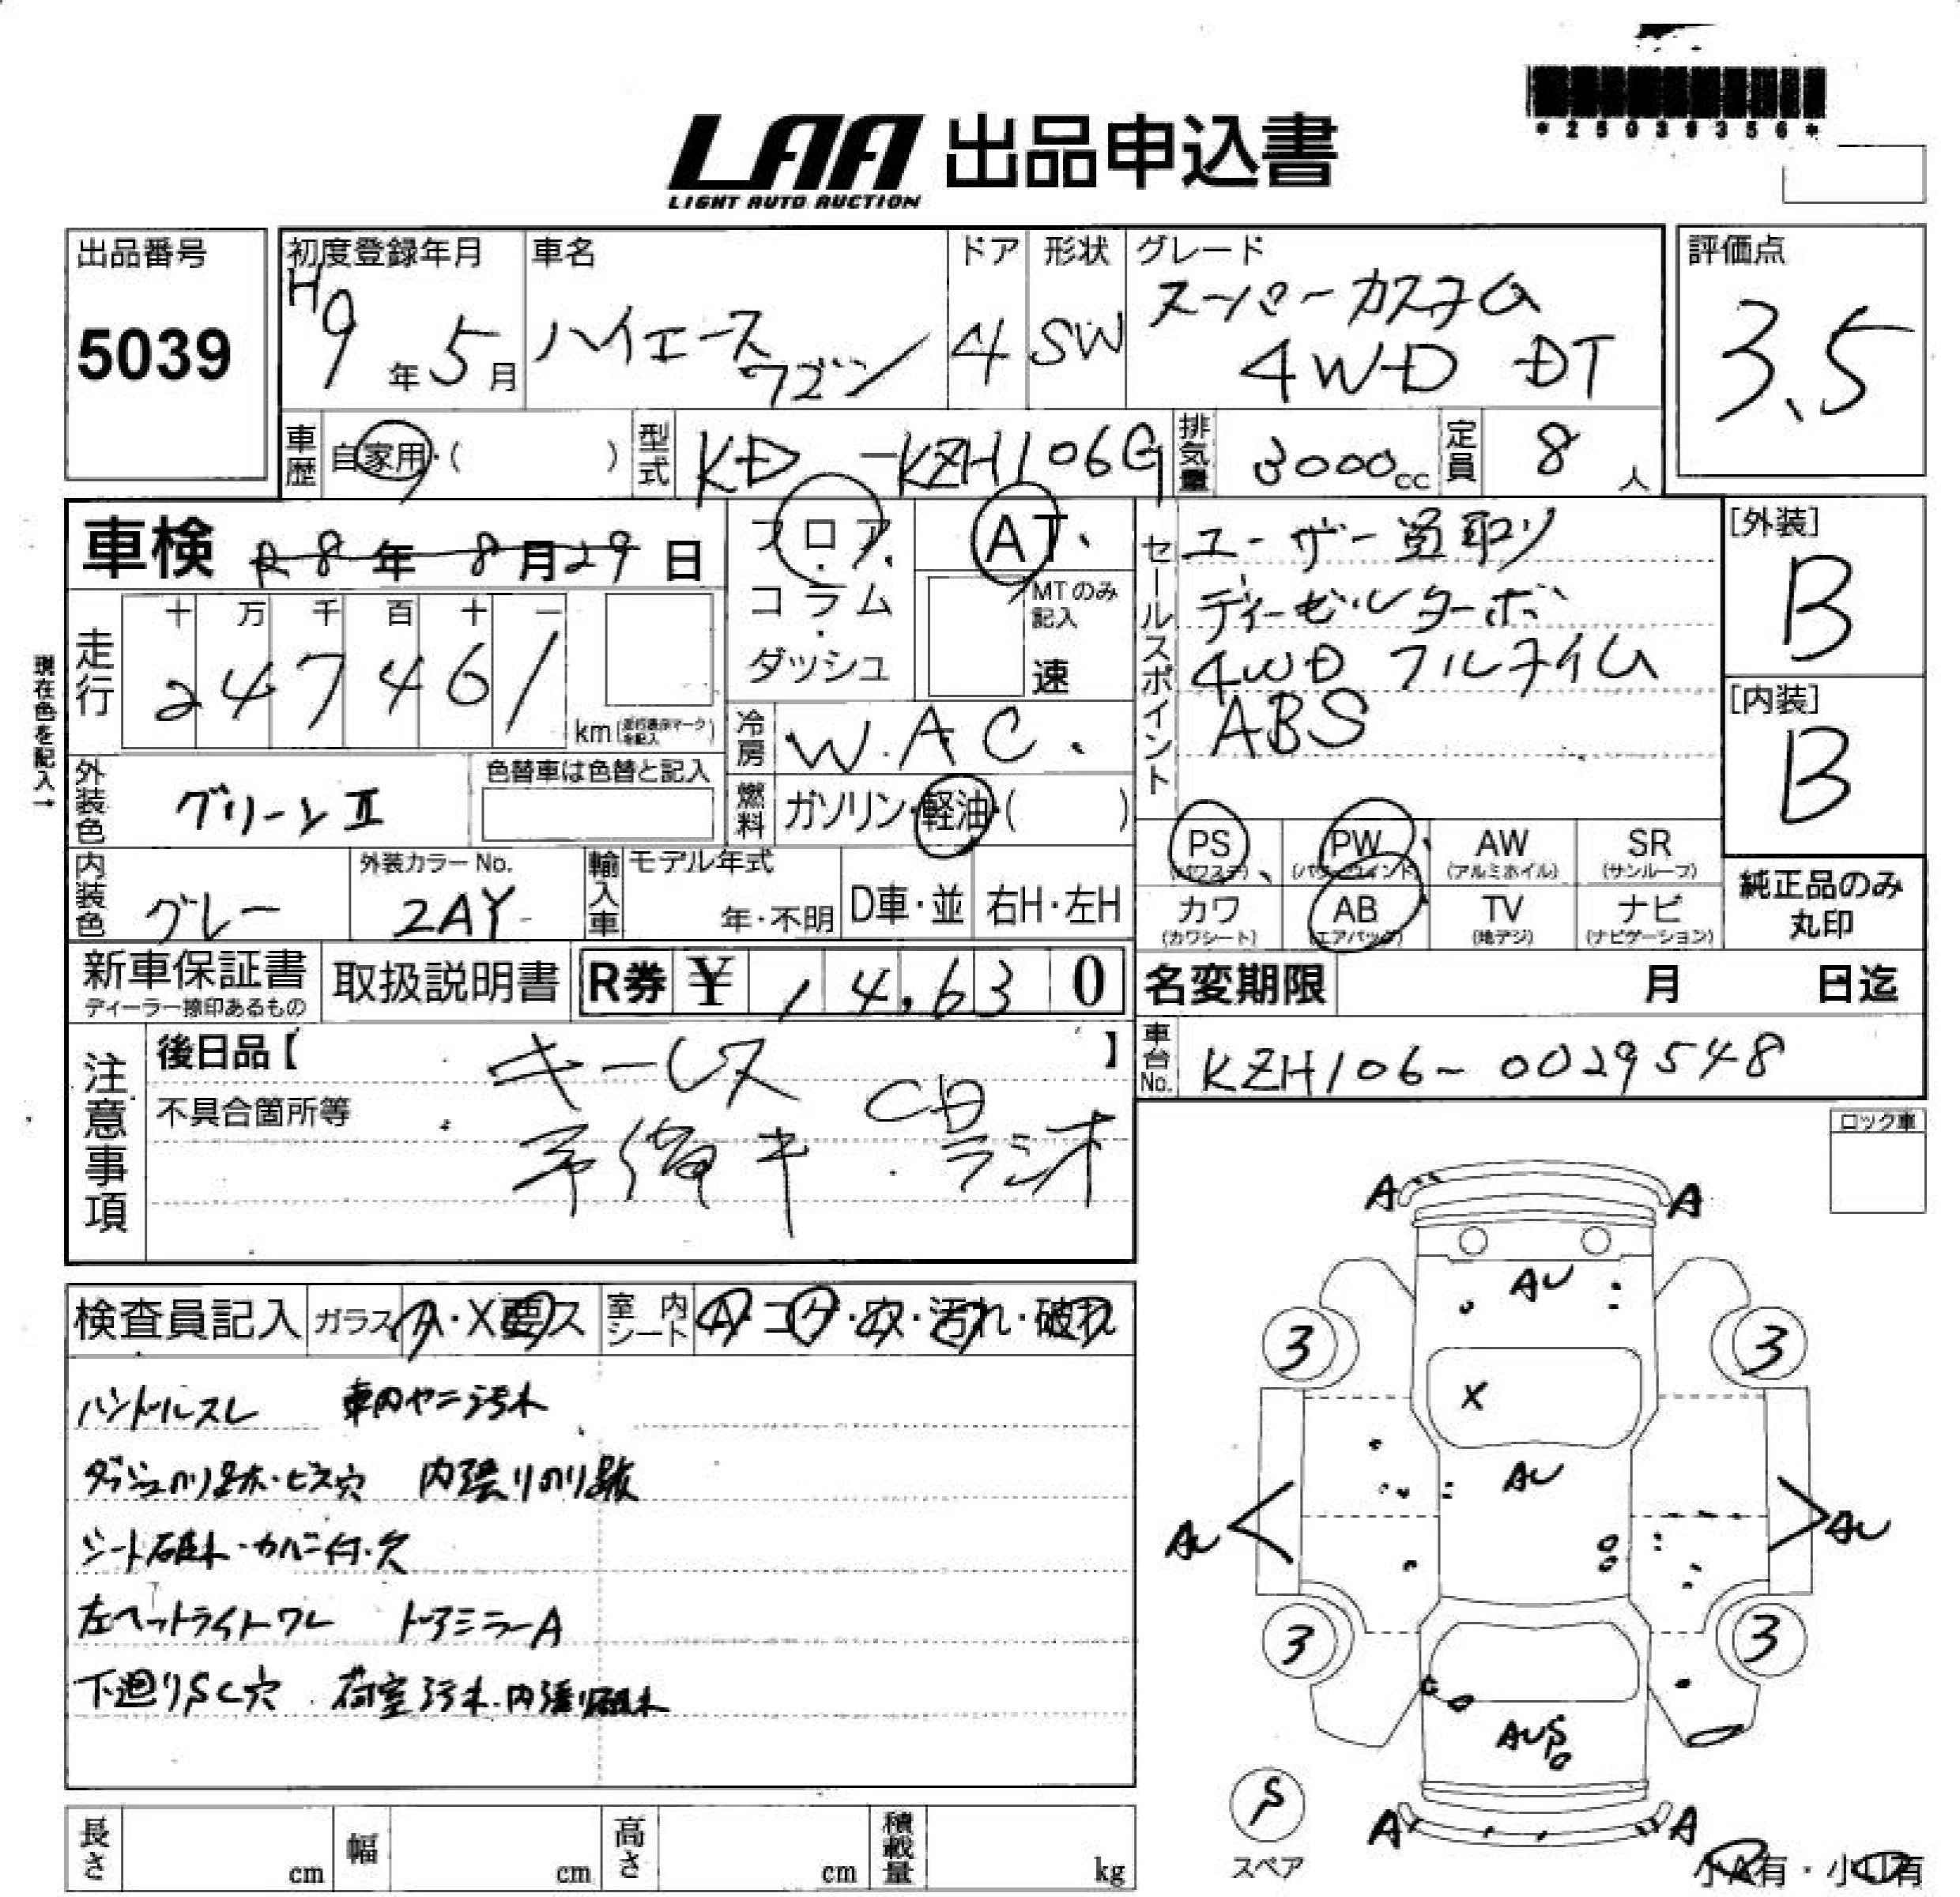 *25039356*
LAA 出品申込書
LIGHT AUTO AUCTION
出品番号
5039
初度登録年月
H9年5月
車名
ハイエースワゴン
ドア
4
形状
SW
グレード
スーパーカスタム
4WD DT
評価点
3.5
車歴 自家用・( )
型式 KD-KZH106G
排気量 3000cc
定員 8人
車検 R8年8月29日
フロア、
コラム
ダッシュ
AT、
MTのみ記入
速
現在色を記入→
走行 十 万 千 百 十 一
247461
km(走行表示マークを記入)
冷房 W.A.C.
外装色 グリーンⅡ
色替車は色替と記入
燃料 ガソリン・軽油・( )
内装色 グレー
外装カラーNo.
2AY
輸入車 モデル年式
年・不明 D車・並 右H・左H
セールスポイント
ユーザー買取り
ディーゼルターボ
4WD フルタイム
ABS
[外装]
B
[内装]
B
PS (パワステ)
PW (パワーウィンド)
AW (アルミホイル)
SR (サンルーフ)
カワ (カワシート)
AB (エアバッグ)
TV (地デジ)
ナビ (ナビゲーション)
純正品のみ
丸印
新車保証書
ディーラー捺印あるもの
取扱説明書
R券 ¥ 14,630
名変期限 月 日迄
車台No. KZH106-0029548
注意事項
後日品【 】
キーレス
不具合箇所等
CD
予備キー
ラジオ
ロック車
検査員記入
ガラス A・X要ス
室内シート A・コゲ・穴・汚れ・破れ
ハンドルスレ 車内ヤニ汚れ
ダッシュのり跡・ビス穴 内張りのり跡
シート破れ・カバー付・穴
左ヘットライトワレ ドアミラーA
下廻りSC穴 荷室汚れ・内張り破れ
A A
AU
3 3
X
AU
AU AU
3 3
AUS
S
スペア
A A
小A有・小U有
長さ cm
幅 cm
高さ cm
積載量 kg